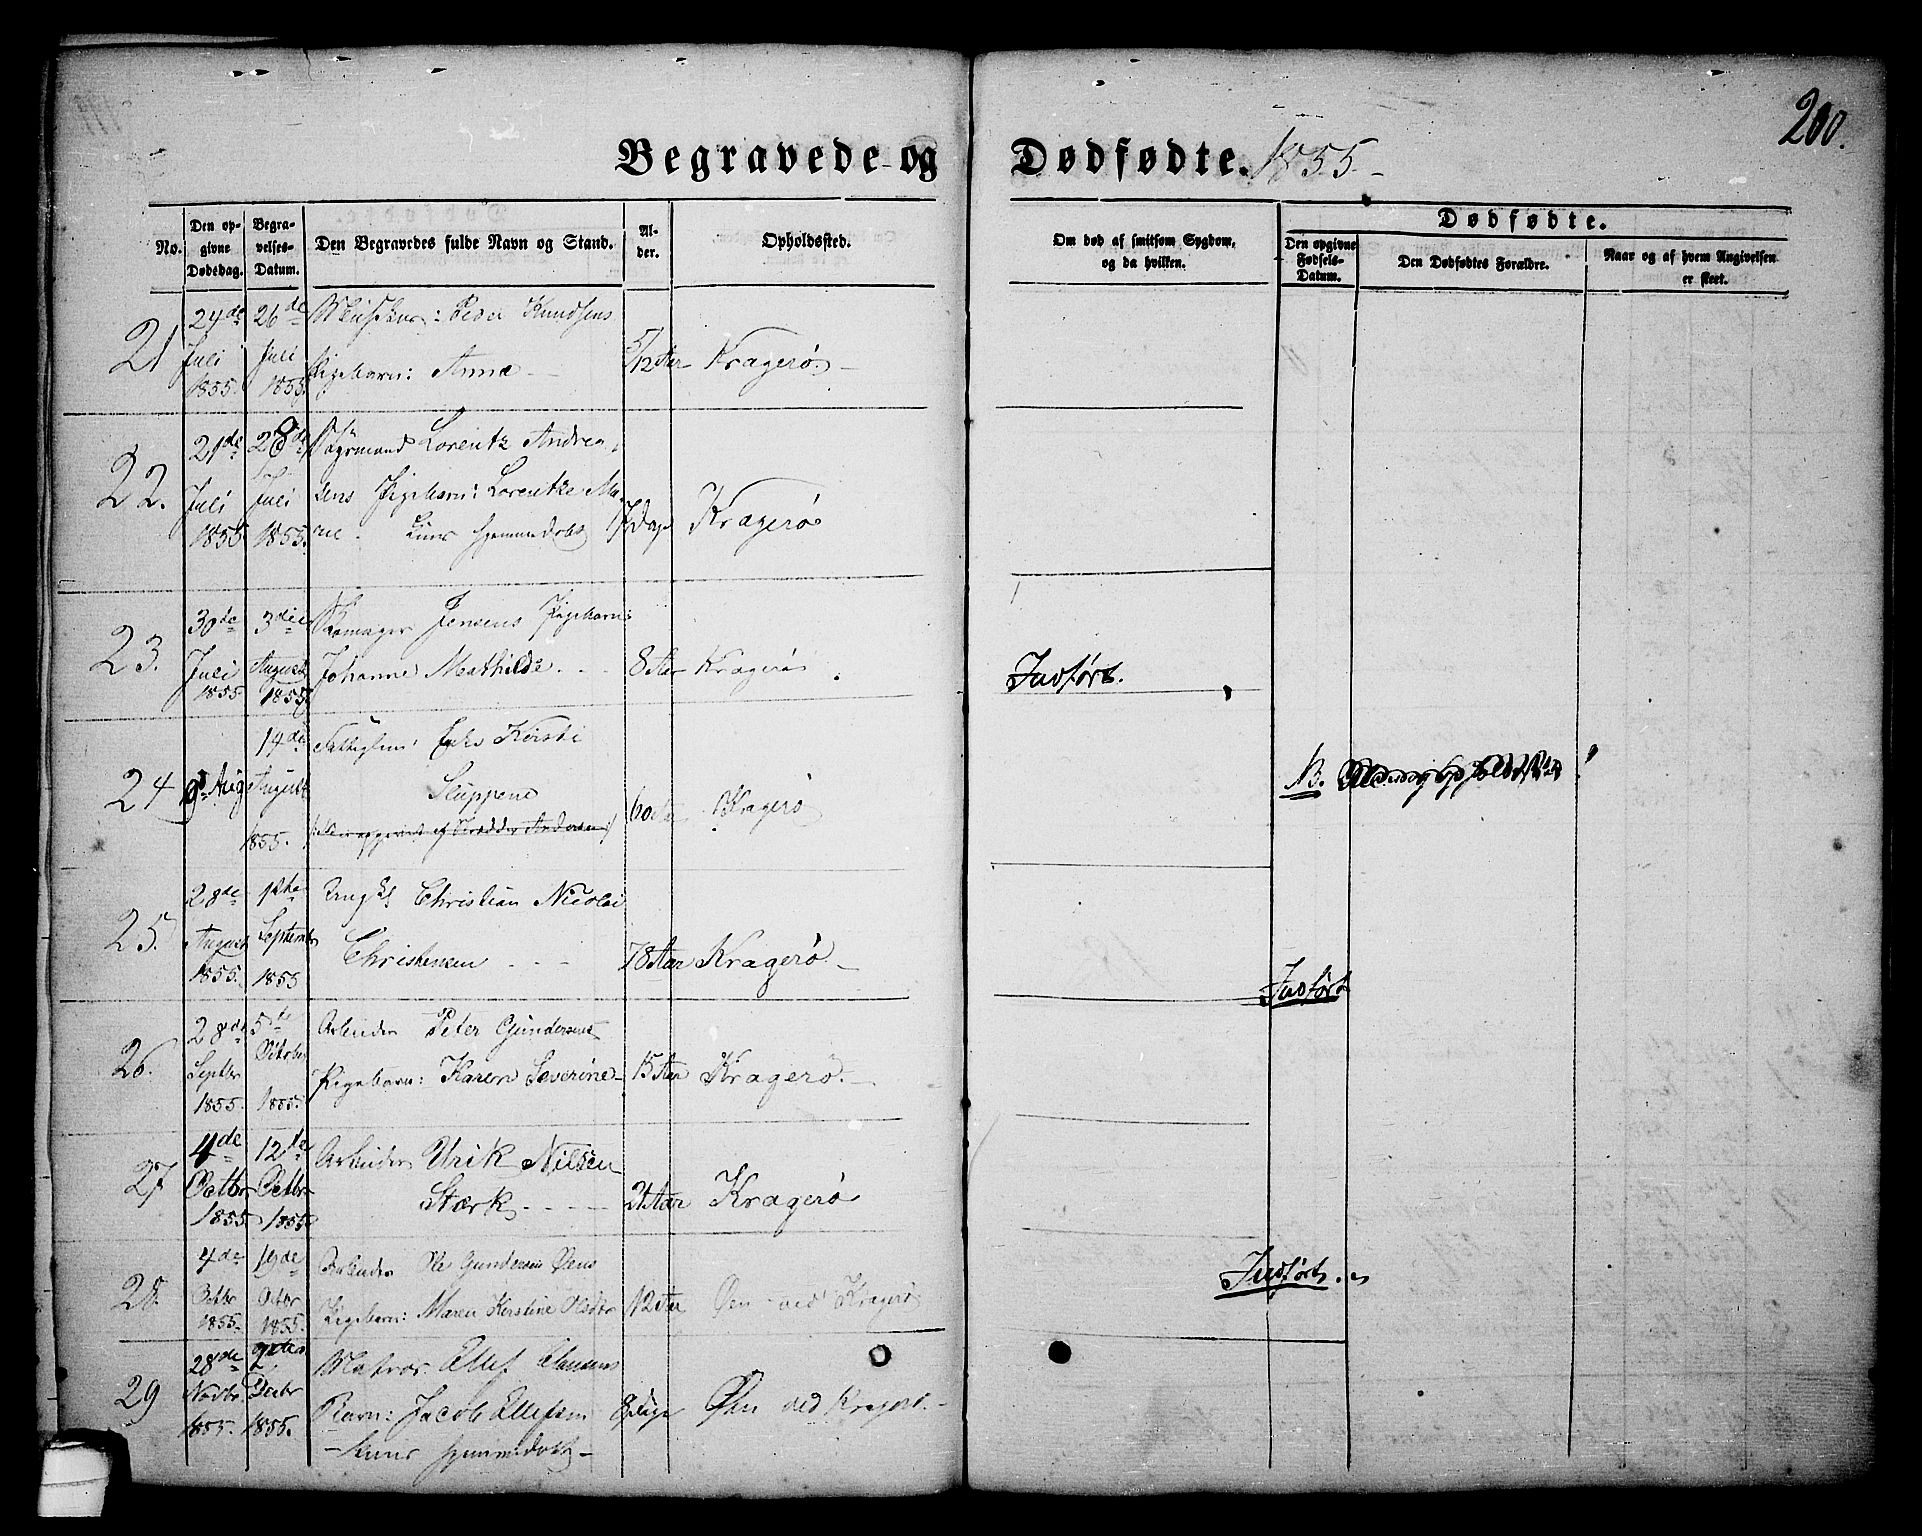 200.
Begravede og Dødfødte. 1855.
No.
Den opgivne Dødedag.
Begravelses-Datum.
Den Begravedes fulde Navn og Stand.
Alder.
Opholdssted.
Om død af smitsom Sygdom, og da hvilken.
Dødfødte.
Den opgivne Fødsels-Datum.
Den Dødfødtes Forældre.
Naar og af hvem Angivelsen er skeet.
21 24de Juli 1855. 26de Juli 1855.
Peder Knudsens
Pigebarn: Anne 5/12 Aar Kragerø.
22. 21de Juli 1855 28de Juli 1855.
Lorentz Andrea-
sens Pigebarn: Lorentze Ma-
rie. hjemmedøbt 7 Dage Kragerø
23. 30de Juli 1855 3die August 1855.
Skomager Jensens Pigebarn:
Johanne Mathilde. 8 Aar Kragerø
Indført.
24 9de Aug 14de August 1855.
Fattiglem: Enke Kirsti
Sluppene 60 Aar Kragerø
NB.
25. 28de August 1855. 1ste September 1855
Ungkl Christian Nicolai
Christensen 78 Aar Kragerø
Indført
26. 28de Septbr 1855. 5te October 1855.
Arbeider Peter Gundersens
Pigebarn: Karen Severine 15 Aar Kragerø.
27 4de Octbr 1855. 12te Octbr 1855.
Arbeider Ulrik Nilsen
Stærk 21 Aar Kragerø
28. 4de Octbr 1855. 19de Octbr 1855.
Arbeider Ole Gundersen Øens
Pigebarn: Maren Kirstine Olsdtr 12 Aar Øen ved Kragerø
Indført.
29 28de Novbr 1855. Decbr 1855.
Matros Ellef Hansens
Barn: Jacob Ellefsen 8 Dage Øen ved Kragerø.
hjemmedøbt